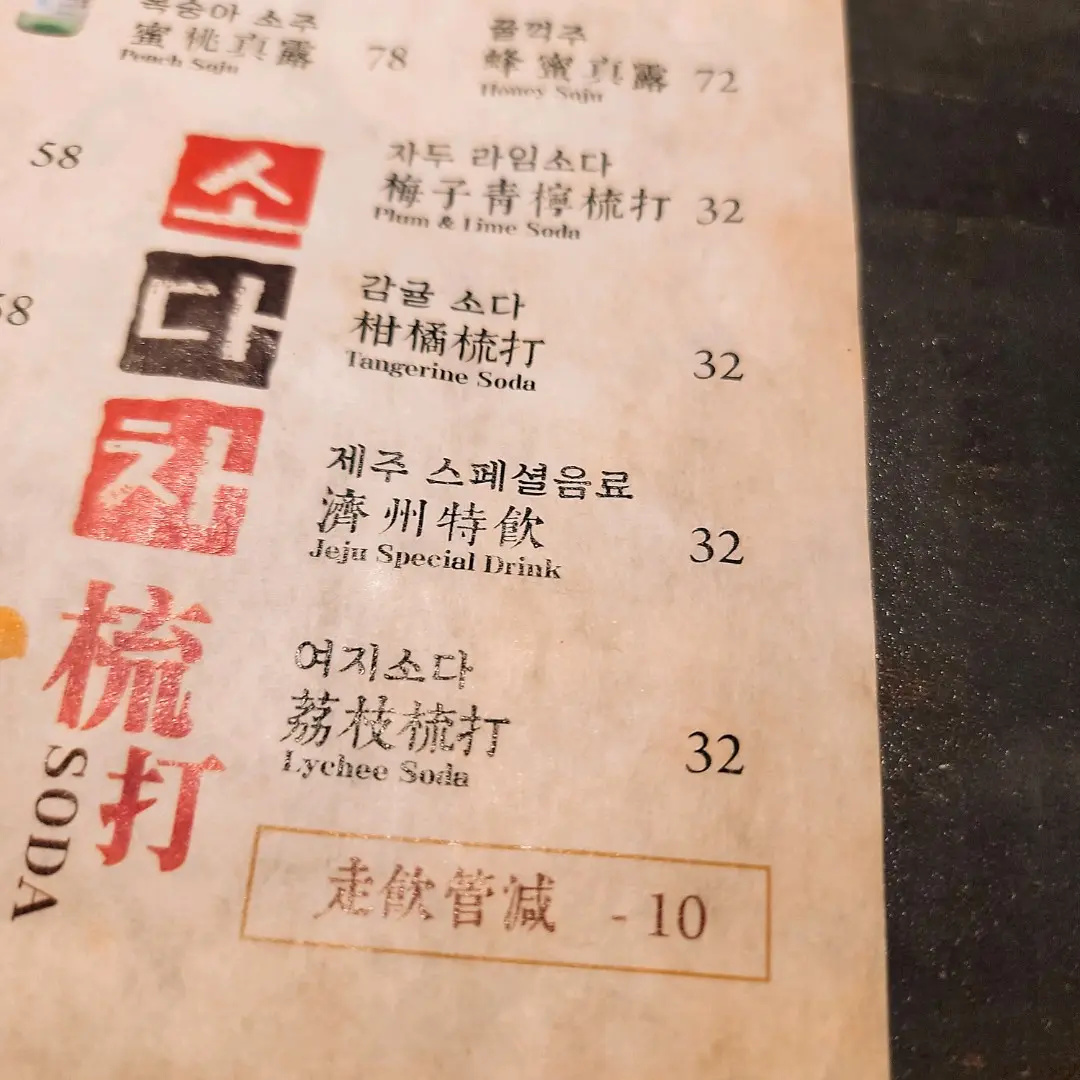 복숭아 소주
蜜桃真露 78
Peach Saju
꿀꺽주
蜂蜜真露 72
Honey Saju
58
소
다
차
梳
打
SODA
자두 라임소다
梅子青檸梳打 32
Plum & Lime Soda
감귤 소다
柑橘梳打 32
Tangerine Soda
제주 스페셜음료
濟州特飲 32
Jeju Special Drink
여지소다
荔枝梳打 32
Lychee Soda
走飲管減 - 10